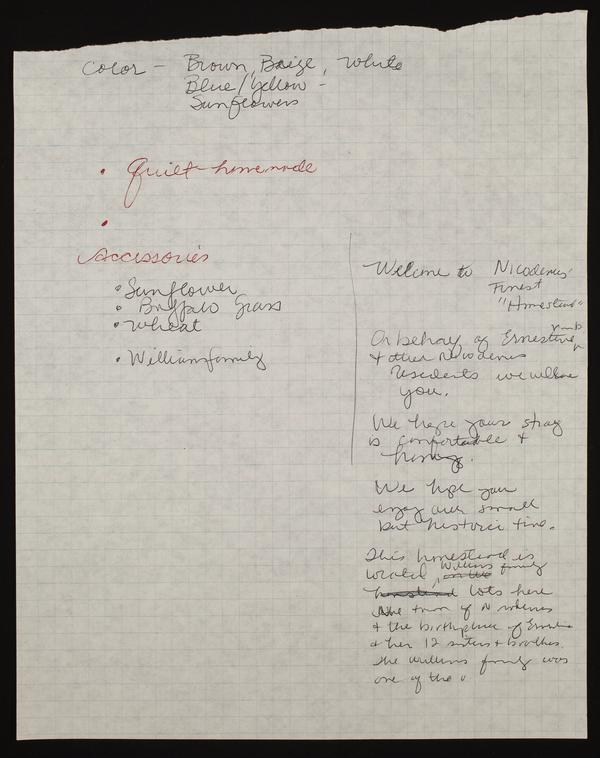 Color - Brown, Baize, White
Blue/Yellow -
Sunflowers
• Quilt-homemade
•
Accessories
• Sunflower
• Buffalo Grass
• Wheat
• Williams family
Welcome to Nicodemus'
Finest
"Homestead"
On behalf of Ernestine
& other Nicodemus
Residents we welcome
you.
We hope your stay
is comfortable &
homey.
We hope you
enjoy our small
but historic town.
This homestead is
located, Williams family
lots here
town of Nicodemus
& the birthplace of Ernestine
& her 12 sisters & brothers.
The Williams family was
one of the